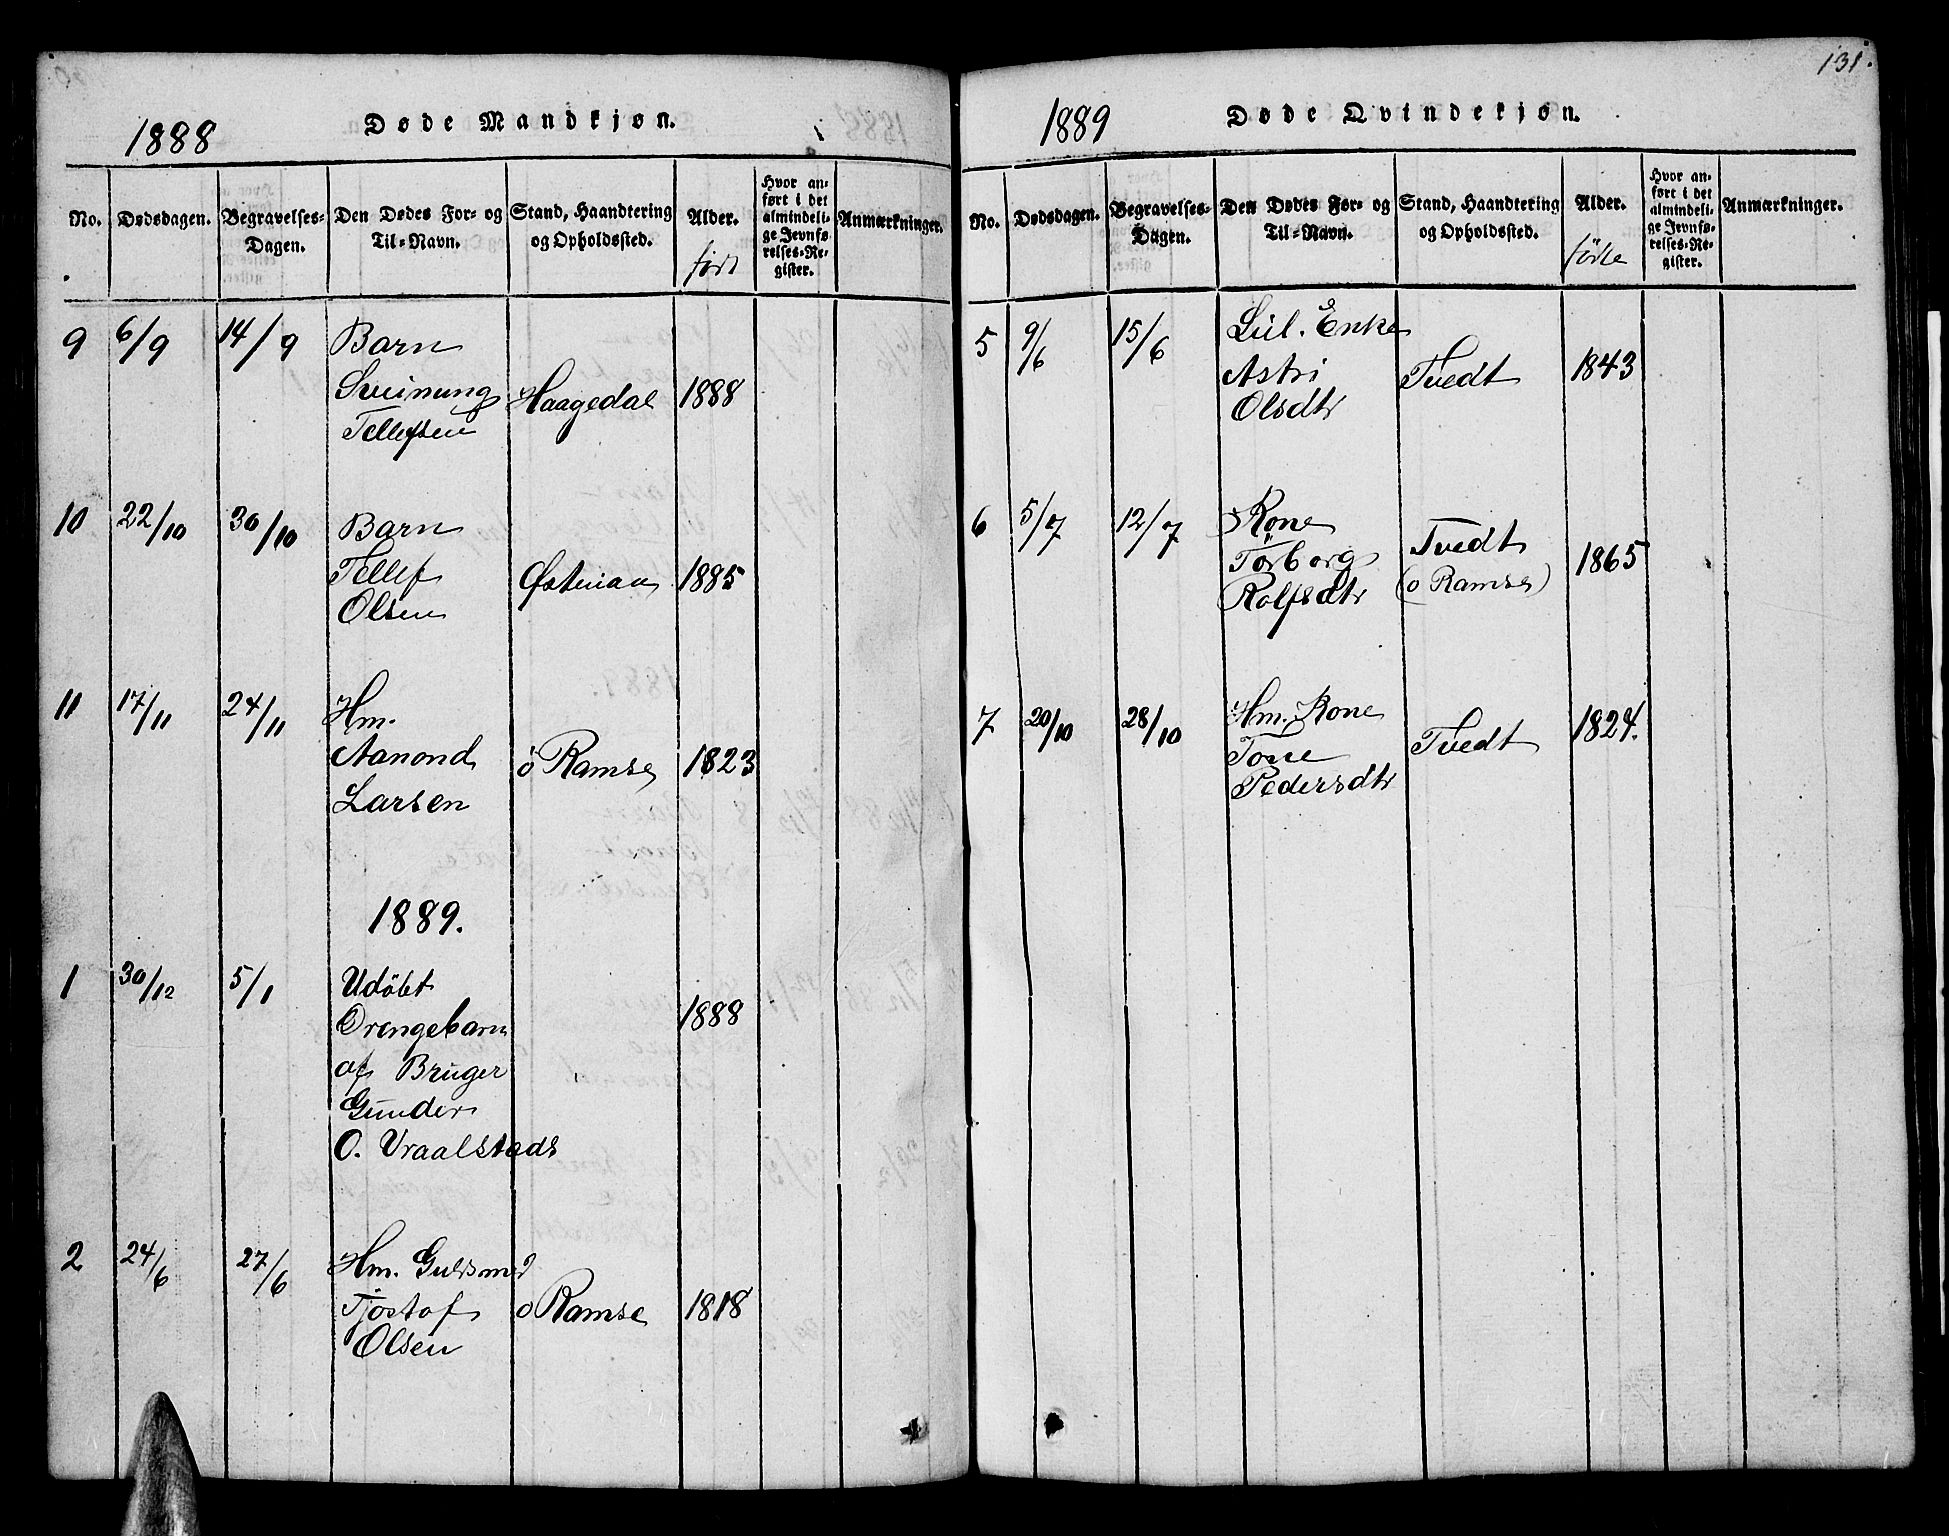 131.
1888
Døde Mandkjøn.
No.
Dødsdagen.
Begravelses-
Dagen.
Den Dødes For- og
Til-Navn.
Stand, Haandtering
og Opholdssted.
Alder.
født
Hvor an-
ført i det
almindeli-
ge Jevnfø-
relses-Re-
gister.
Anmærkninger.
9 6/9 14/9 Barn
Sveinung Haagedal 1888
Tellefsen
10 22/10 30/10 Barn
Tellef Østenaa 1885
Olsen
11 17/11 24/11 Hm.
Aanond ö Ramse 1823
Larsen
1889.
1 30/12 5/1 Udöbt
Drengebarn 1888
af Bruger
Gunder
O. Vraalstads
2 24/6 27/6 Hm. Guldsmed
Tjøstof ö Ramse 1818
Olsen
1889
Døde Qvindekjøn.
No.
Dødsdagen.
Begravelses-
Dagen.
Den Dødes For- og
Til-Navn.
Stand, Haandtering
og Opholdssted.
Alder.
födte
Hvor an-
ført i det
almindeli-
ge Jevnfø-
relses-Re-
gister.
Anmærkninger.
5 9/6 15/6 Enke
Astri Tvedt 1843
Olsdtr
6 5/7 12/7 Kone Tvedt
Torborg (ö Ramse) 1865
Rolfsdtr
7 20/10 28/10 Hm. Kone
Tone Tvedt 1824.
Pedersdtr